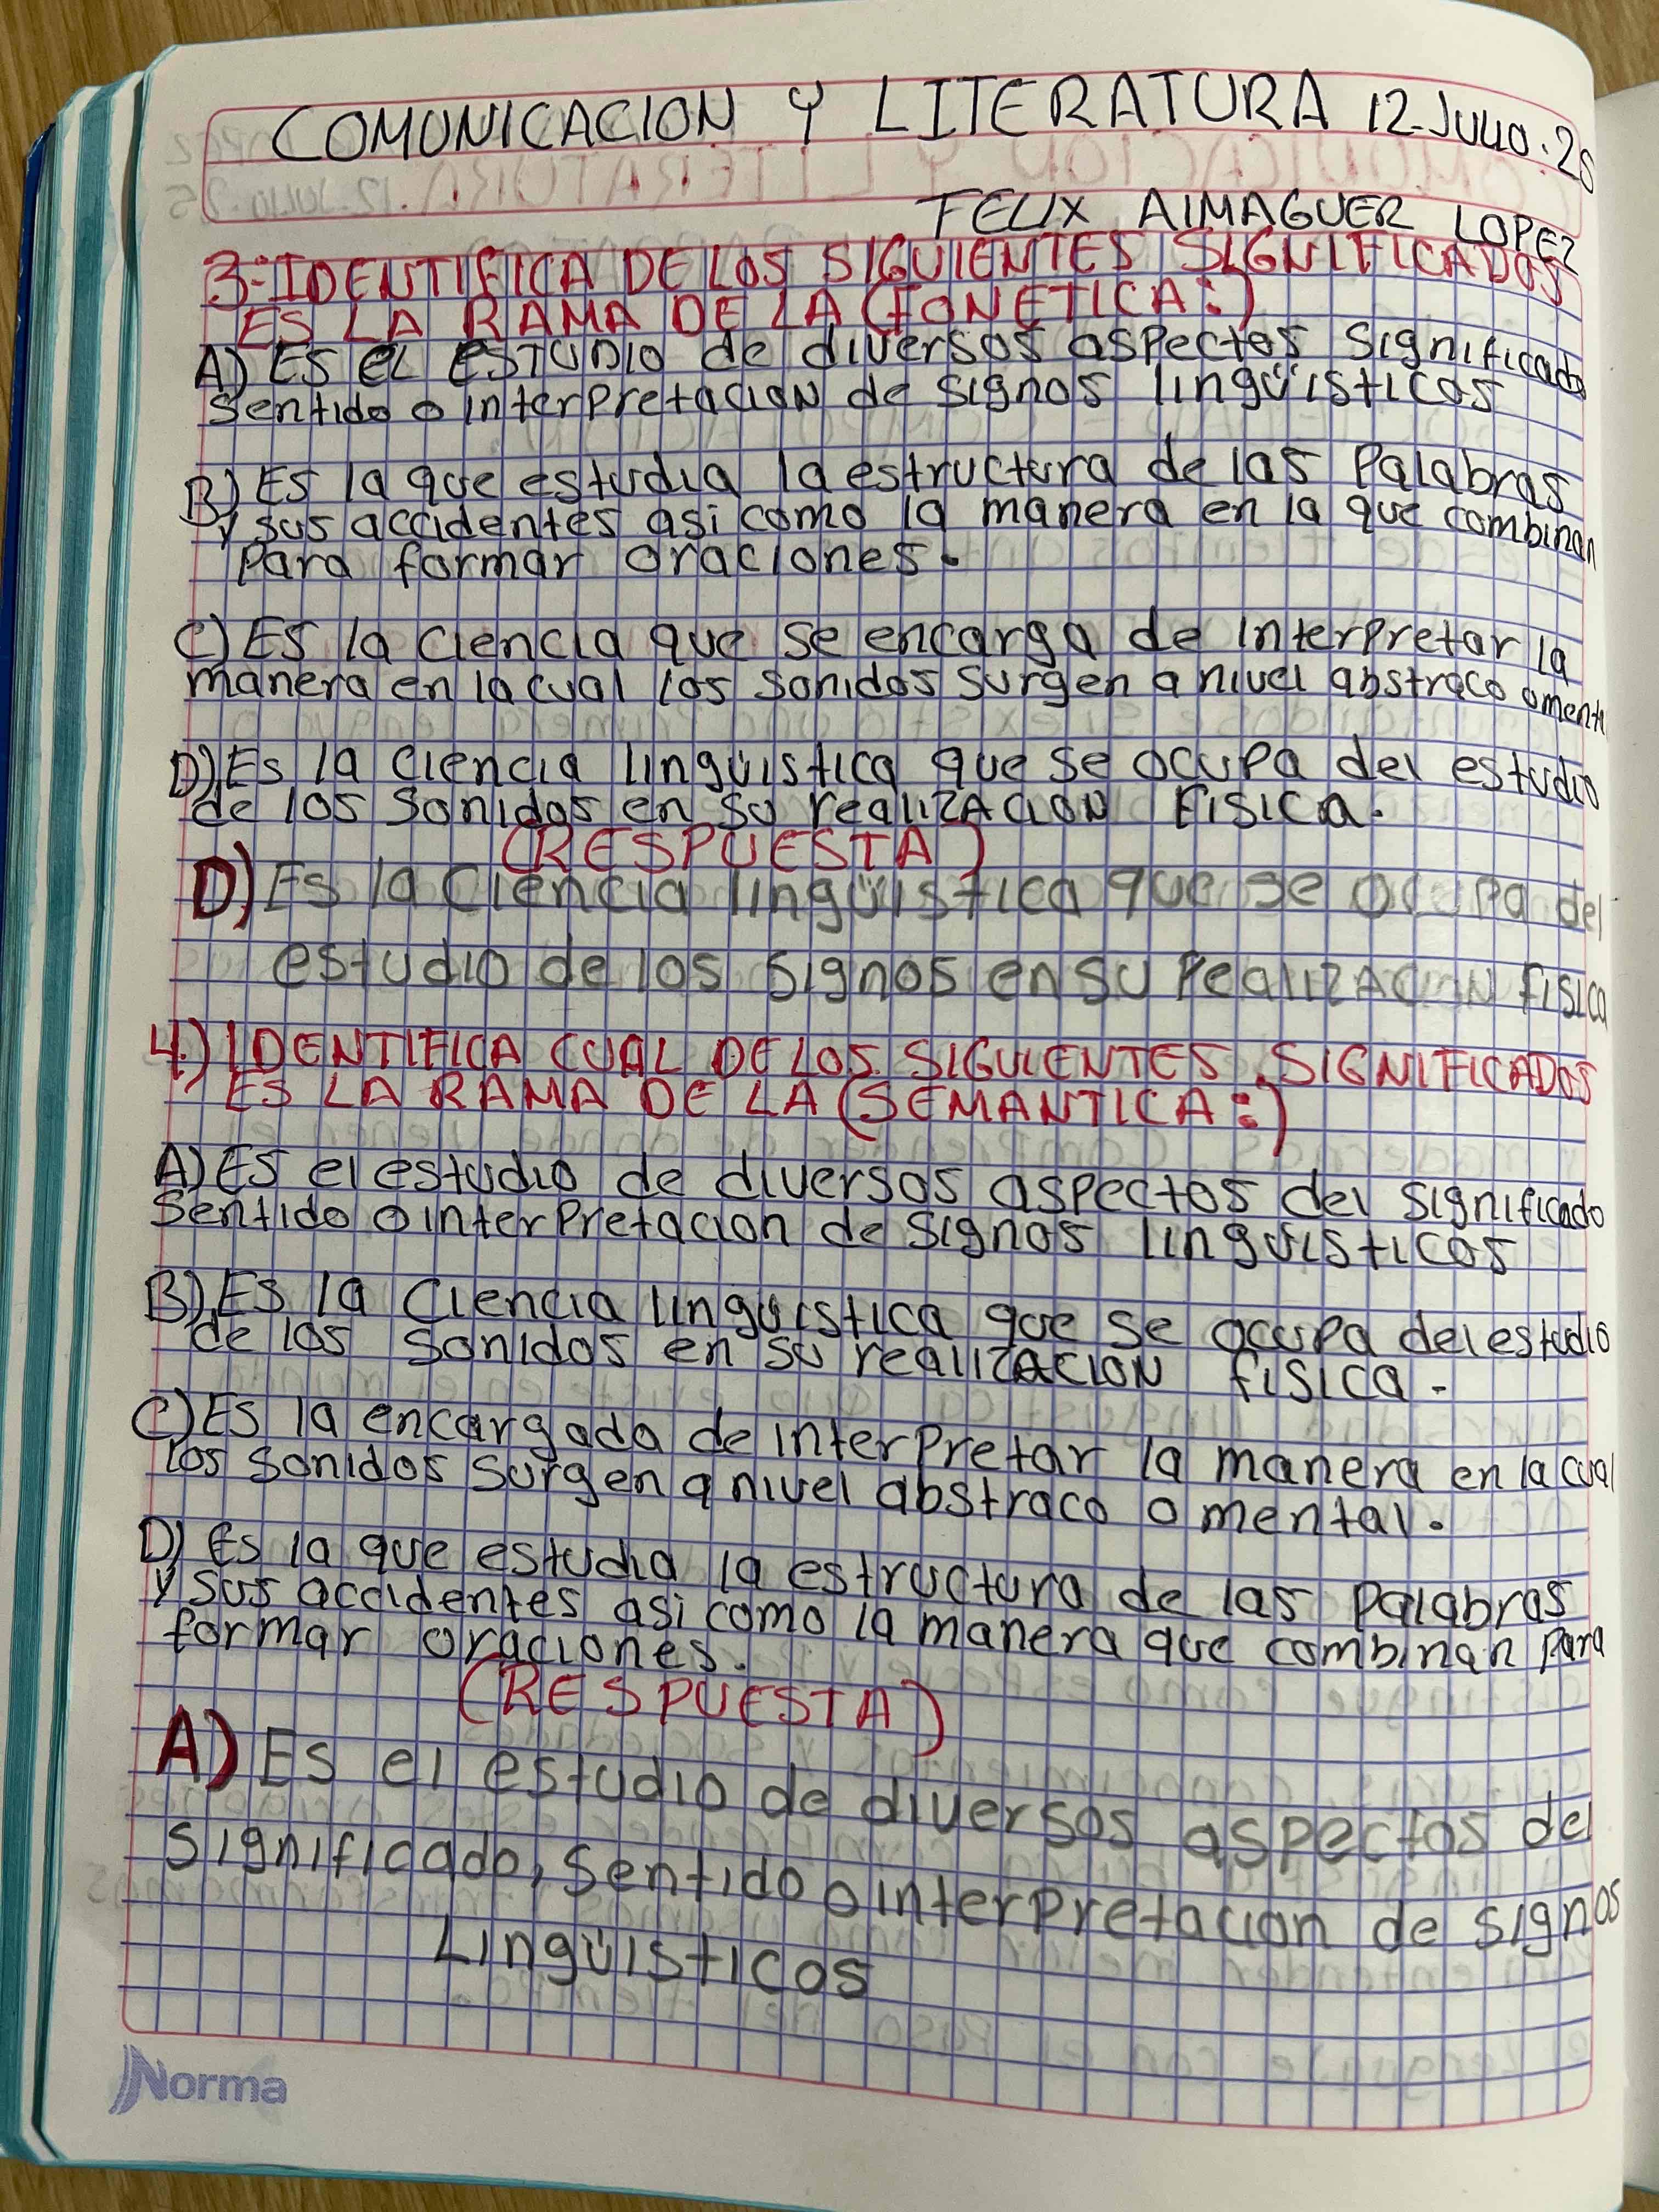 COMUNICACION Y LITERATURA 12-JULIO.25
FELIX AlMAGUER LOPEZ
3-IDENTIFICA DE LOS SIGUIENTES SIGNIFICADOS
ES LA RAMA DE LA (FONETICA:)
A) ES EL ESTUDIO de diversos aspectos significado
sentido o interpretacion de signos lingüisticos
B) Es la que estudia la estructura de las Palabras
y sus accidentes asi como la manera en la que combinan
Para formar oraciones.
C) Es la ciencia que se encarga de interpretar la
manera en la cual los sonidos surgen a nivel abstraco o
D) Es la ciencia lingüistica que se ocupa del estudio
de los sonidos en su realizACION FISICA.
(RESPUESTA)
D) Es la Ciencia lingüistica que se ocupa del
estudio de los signos en su realizACION FISICA
4.) IDENTIFICA CUAL DE LOS SIGUIENTES SIGNIFICADOS
ES LA RAMA DE LA (SEMANTICA:)
A) ES el estudio de diversos aspectos del significado
sentido o interpretacion de signos linguisticos
B) Es la Ciencia linguistica que se ocupa del estudio
de los sonidos en su realizACION fISICA.
C) Es la encargada de interpretar la manera en la cual
los sonidos surgen a nivel abstraco o mental.
D) Es la que estudia la estructura de las Palabras
y sus accidentes asi como la manera que combinan Para
formar oraciones.
(RESPUESTA)
A) Es el estudio de diversos aspectos del
significado, sentido o interpretacion de signos
Lingüisticos
Norma